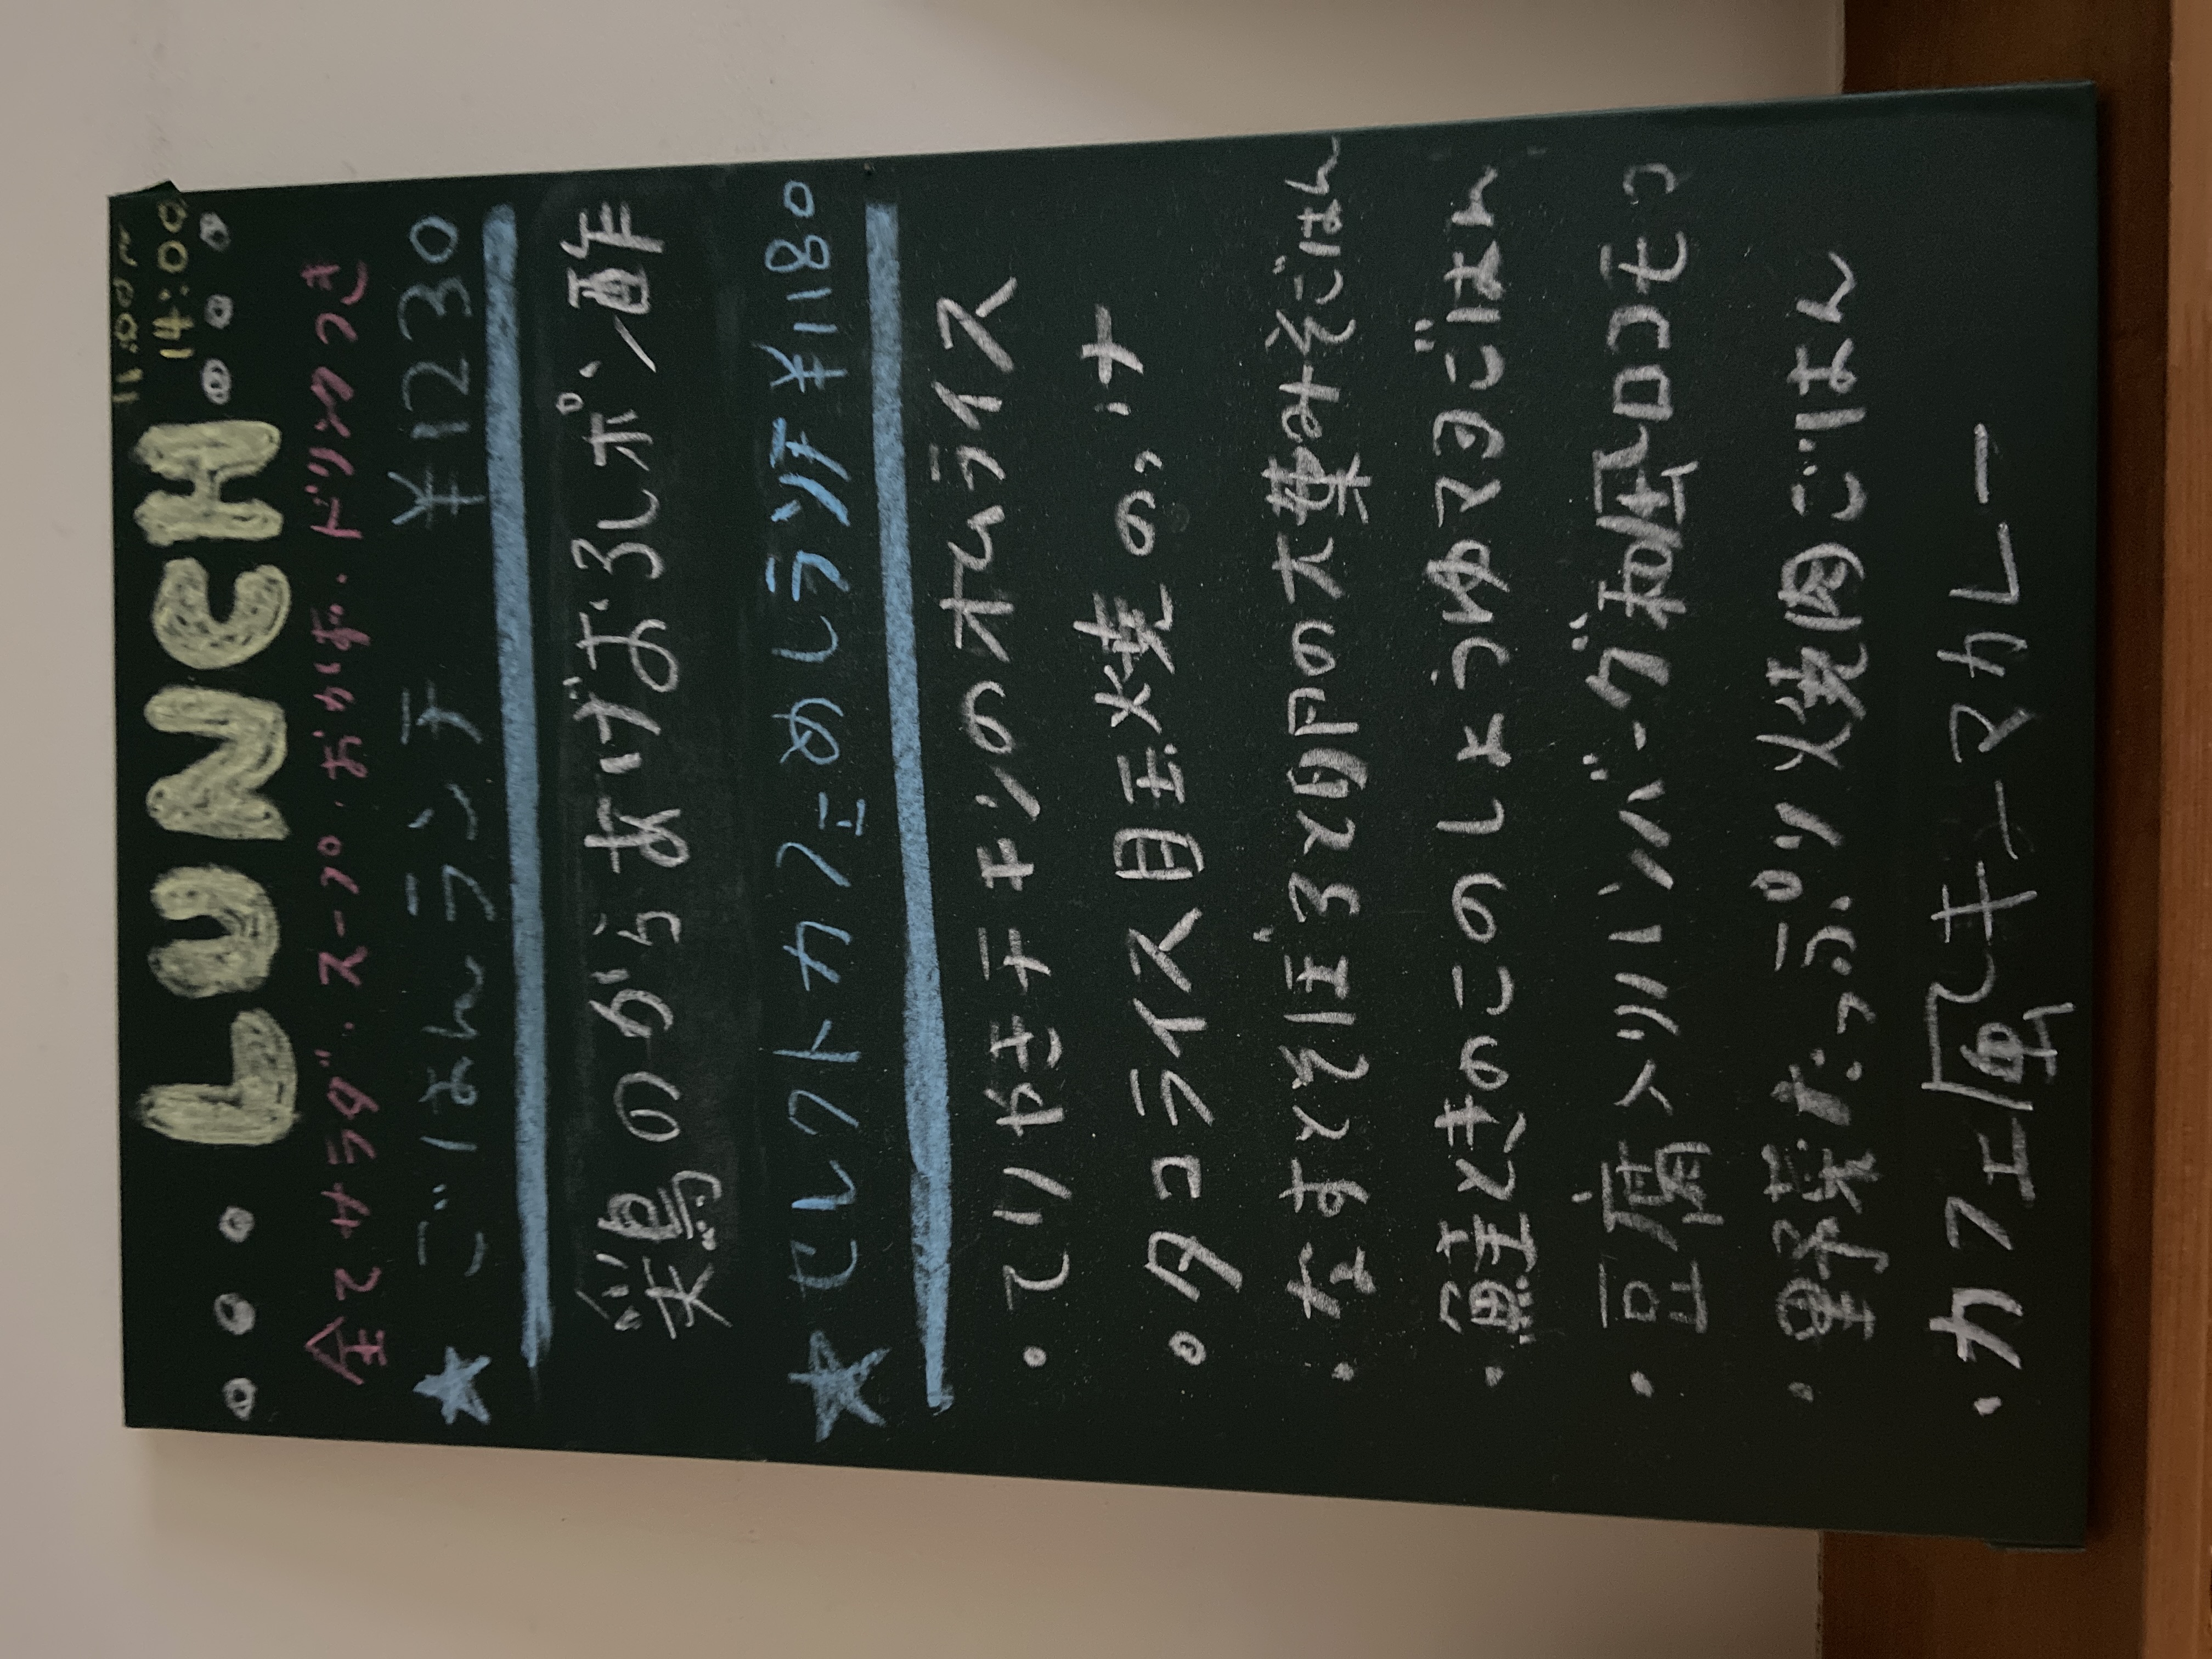 11:00~
14:00
LUNCH
全てサラダ・スープ・おかず・ドリンクつき
★ ごはんランチ ¥1230
若鶏のからあげおろしポン酢
★ セレクトカフェめしランチ ¥1180
・てりやきチキンのオムライス
・タコライス 目玉焼のっけ
・なすとそぼろと卵の大葉みそごはん
・鮭ときのこのしょうゆマヨごはん
・豆腐入りハンバーグ 和風ロコモコ
・野菜たっぷり 焼肉ごはん
・カフェ風キーマカレー